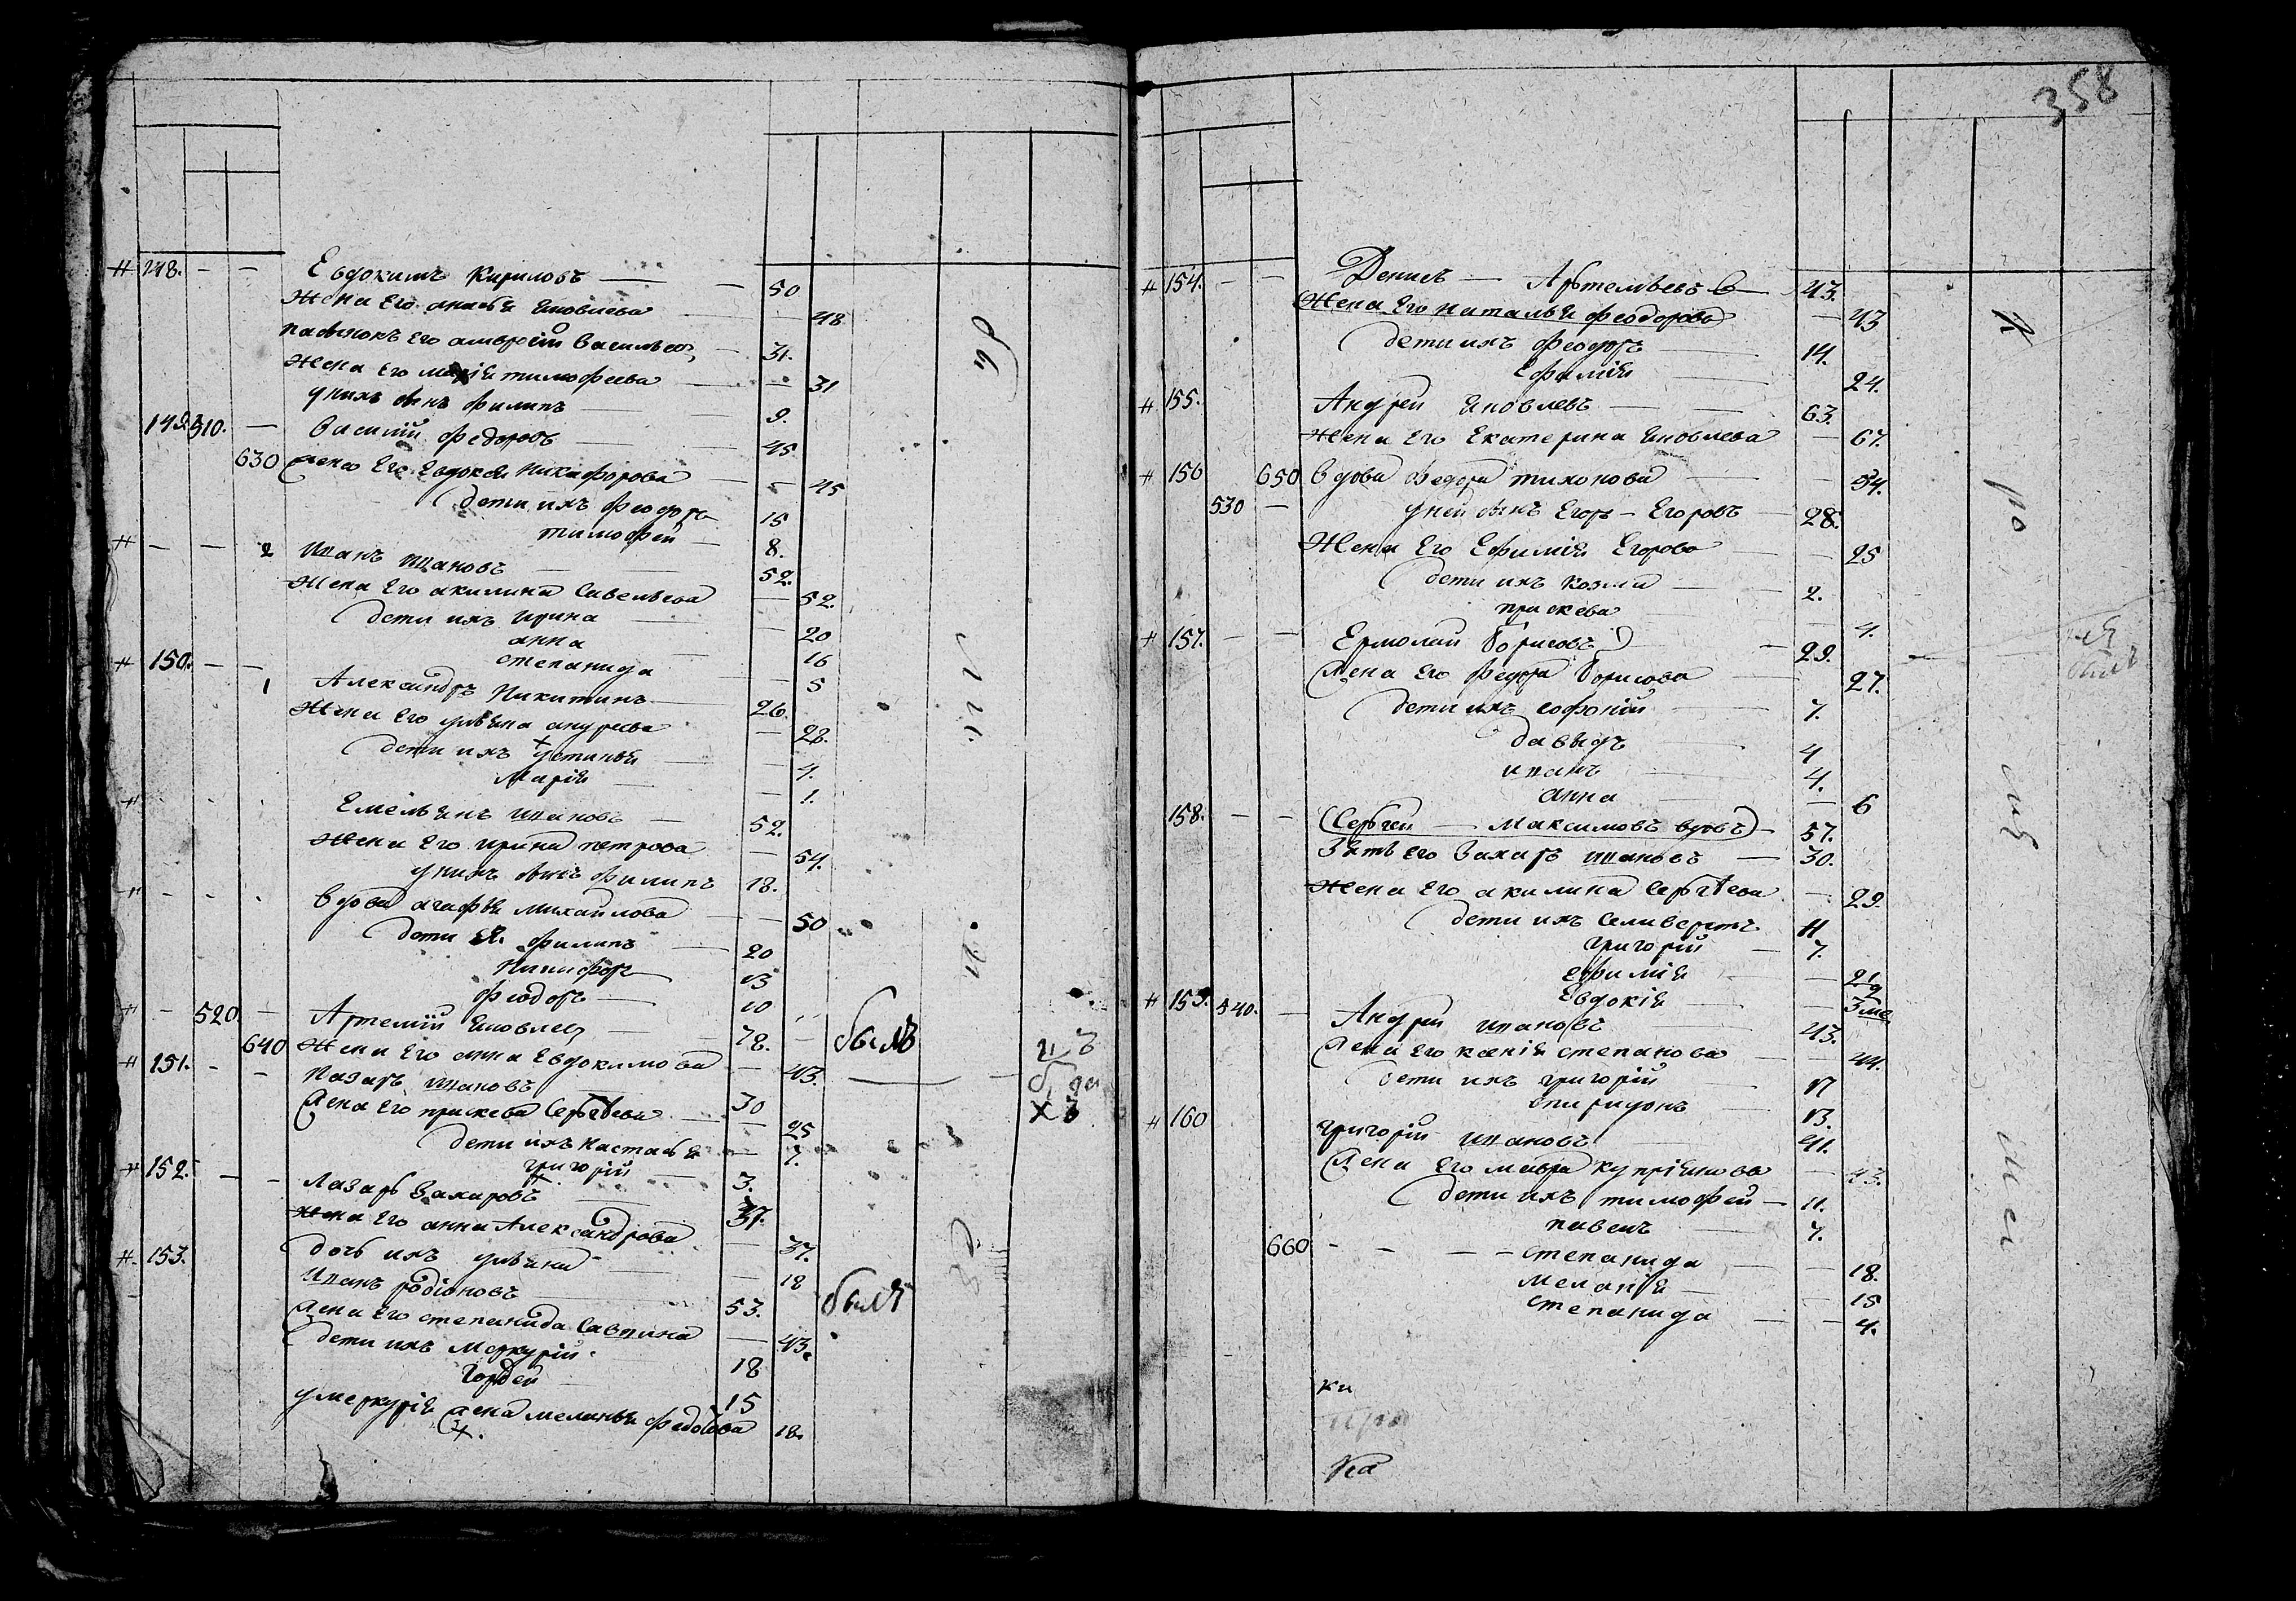 358
148. Евдокимъ Кириловъ 50
Жена Его Яковлева 48
Его Васильевъ 31.
Жена Его Марія тимофеева 31
у нихъ сынъ филипъ 9.
149. 510. Василий федоровъ 45
630 жена Его Евдокея Никифорова 45
дети ихъ феодоръ 15
тимофей 8.
2 иванъ ивановъ 52.
Жена Его акилина Савельева 52.
дети ихъ ирина 20
анна 16
степанида 5
150. 1 Александръ Никитинъ 26.
Жена Его ульяна андреева 23.
дети ихъ устинья 4.
Марія 1.
Емельянъ ивановъ 52.
Жена Его ирина петрова 54.
у нихъ сынъ филипъ 18.
вдова агафья михаилова 50
дети Ея филипъ 20
Никифоръ 13
феодоръ 10
520 Артемий Яковлевъ 78. былъ
640 Жена Его анна Евдокимова 43.
151. Назаръ ивановъ 30
жена Его праскева Сергѣева 25
дети ихъ настасья 7.
григорій 3.
152. Лазарь Захаровъ 37.
жена Его анна Александрова 37.
дочь ихъ ульяна 18
153. Иванъ родіоновъ 53. былъ
жена Его степанида Савина 43.
дети ихъ Меркурій 18
Гордей 15
у меркурія жена меланья федотова 18.
154. Денисъ Артемьевъ 43.
Жена Его наталья феодорова 43
дети ихъ феодоръ 14.
Ефимія 24.
155. Андрей Яковлевъ 63.
жена Его Екатерина Яковлева 67.
156 650 вдова федора тихонова 54.
530 у ней сынъ Егоръ Егоровъ 28.
Жена Его Ефимія Егорова 25
дети ихъ козма 2.
праскева 4.
157. Ермолай Борисовъ 29.
жена Его федора Борисова 27.
дети ихъ софоній 7.
давыдъ 4
иванъ 4.
анна 6
158. Сергей Максимовъ вдовъ 57.
Зять его Захаръ ивановъ 30.
жена Его акилина Сергѣева 29.
дети ихъ Селиверстъ 11
григорій 7.
ефимія 2
Евдокія 3 ме.
159. 540. Андрей ивановъ 43.
жена Его ксенія степанова 44.
дети ихъ григорій 17
спиридонъ 13.
160 григорій ивановъ 41.
жена Его мавра купріянова 43.
дети ихъ тимофей 11.
павелъ 7.
660 степанида 18.
меланія 15
степанида 4.
ки